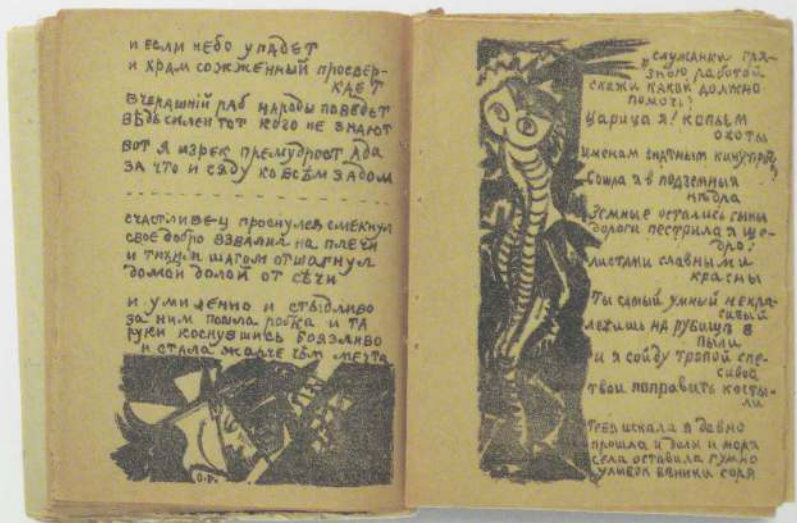 и если небо упадет
и храм сожженный просвер-
кает
вчерашній раб народы поведет
вѣдь силен тот кого не знают
вот я изрек премудрост ада
за что и сяду ко всѣм задом
счастливец проснулся смекнул
свое добро взвалил на плечи
и тихим шагом отшагнул
домой долой от сѣчи
и умиленно и стыдливо
за ним пошла робка и та
руки коснувшись боязливо
и стала жарче чѣм мечта
О.Р.
служанки гря-
зною работой
скажи какой должно
помочь?
Царица я! копьем
охоты
именам знатным
Сошла я в подземныя
нѣдра
Земные остались сыны
дороги пестрила я ще-
дро:
листами славными
красны
Ты самый умный некра-
сивый
лежишь на рубище в
пыли
и я сойду тропой спе-
сивой
твои поправить косты-
ли
Тебя искала я давно
прошла и долы и моря
села оставила гумно
улыбок вѣники соря